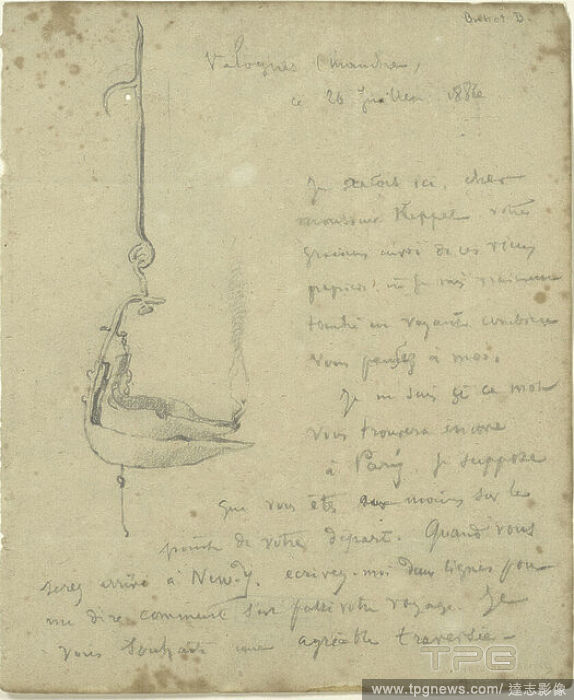 Buhot B.
Valognes (Manche),
ce 26 Juillet 1886
Je reçois ici, cher
monsieur Keppel, votre
gracieux envoi de ces vieux
papiers, et je suis vraiment
touché en voyant combien
vous pensez à moi.
Je ne sais si ce mot
vous trouvera encore
à Paris, je suppose
que vous êtes au moins sur le
point de votre départ. Quand vous
serez arrivé à New-Y. écrivez-moi deux lignes pour
me dire comment s'est passé votre voyage. Je
vous souhaite une agréable traversée -
TPG
www.tpgnews.com/達志影像